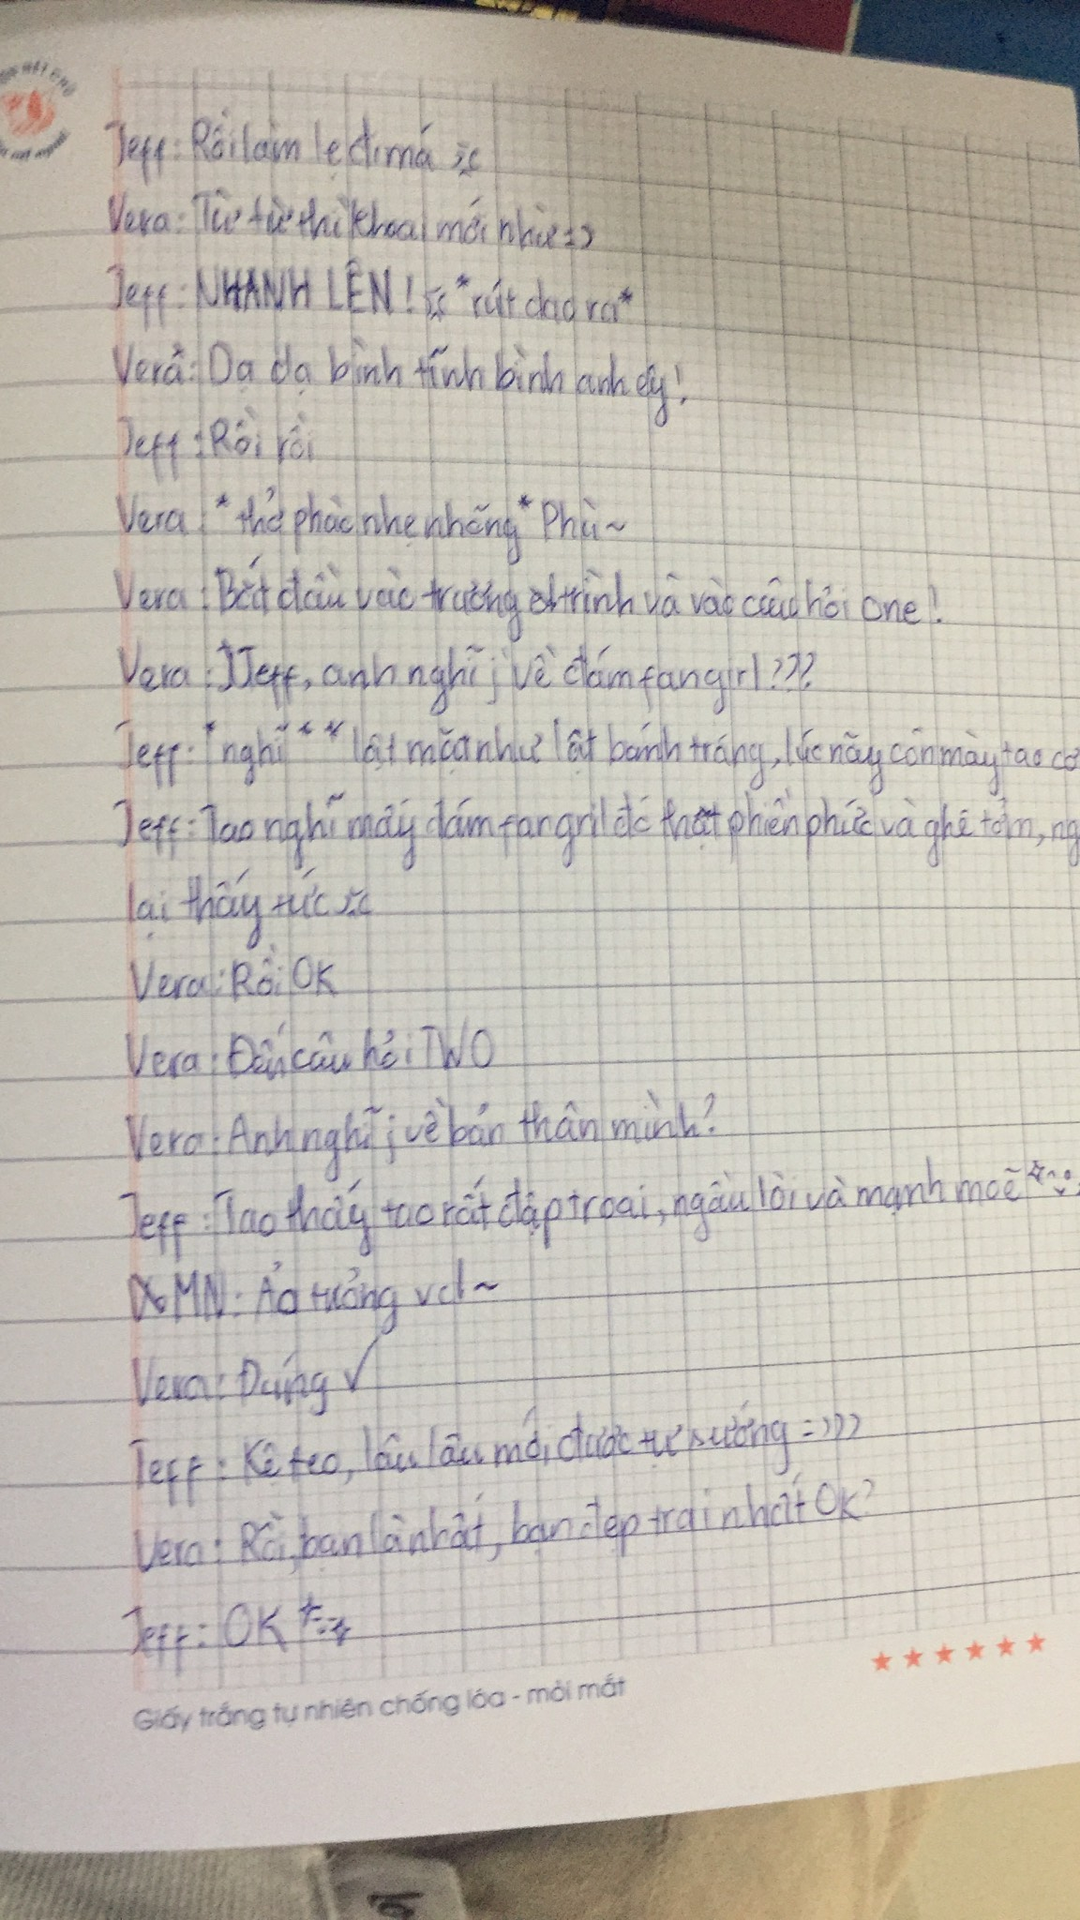 Jeff: Rồi làm lẹ đi má
Vera: Từ từ thì khoai mới nhừ =))
Jeff: NHANH LÊN! *rút dao ra*
Vera: Dạ dạ bình tĩnh bình anh ơy!
Jeff: Rồi rồi
Vera: *thở phào nhẹ nhõng* Phù~
Vera: Bắt đầu vào trương trình và vào câu hỏi one!
Vera: Jeff, anh nghĩ j về đám fangirl???
Jeff: *nghĩ* * lật mặt như lật bánh tráng, lúc nãy còn mày tao cơ
Jeff: Tao nghĩ mấy đám fangril đó thật phiền phức và ghê tởm, ng
lại thấy tức
Vera: Rồi OK
Vera: Đến câu hỏi TWO
Vera: Anh nghĩ j về bản thân mình?
Jeff: Tao thấy tao rất đập troai, ngầu lòi và mạnh moẽ
MN: Ảo tưởng vcl~
Vera: Đúng ✓
Jeff: Kệ teo, lâu lâu mới được tự sướng =)))
Vera: Rồi, bạn là nhất, bạn đẹp trai nhất Ok?
Jeff: OK
Giấy trắng tự nhiên chống lóa - mỏi mắt